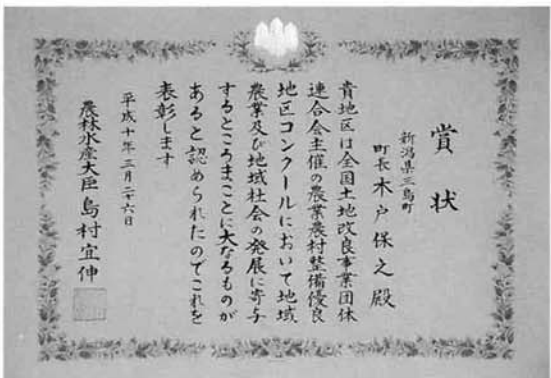 賞状
新潟県三島町
町長 木戸保之殿
貴地区は全国土地改良事業団体
連合会主催の農業農村整備優良
地区コンクールにおいて地域
農業及び地域社会の発展に寄与
するところまことに大なるものが
あると認められたのでこれを
表彰します
平成十年三月二十六日
農林水産大臣 島村宜伸